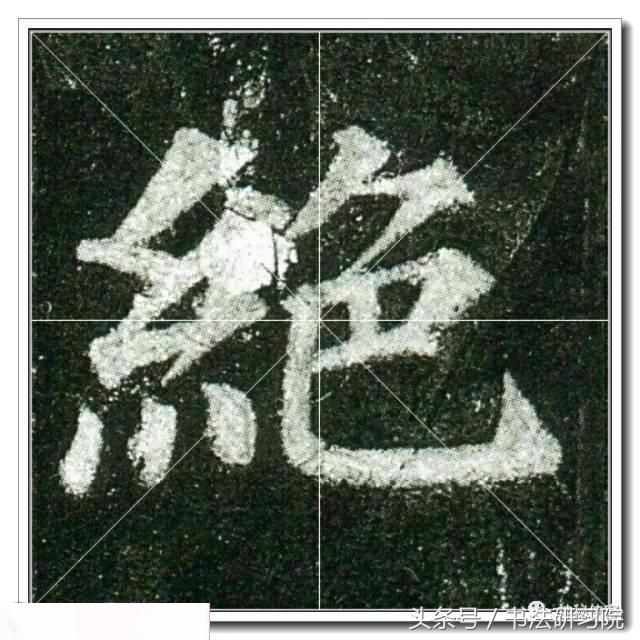 絶
头条号 / 书法研习院